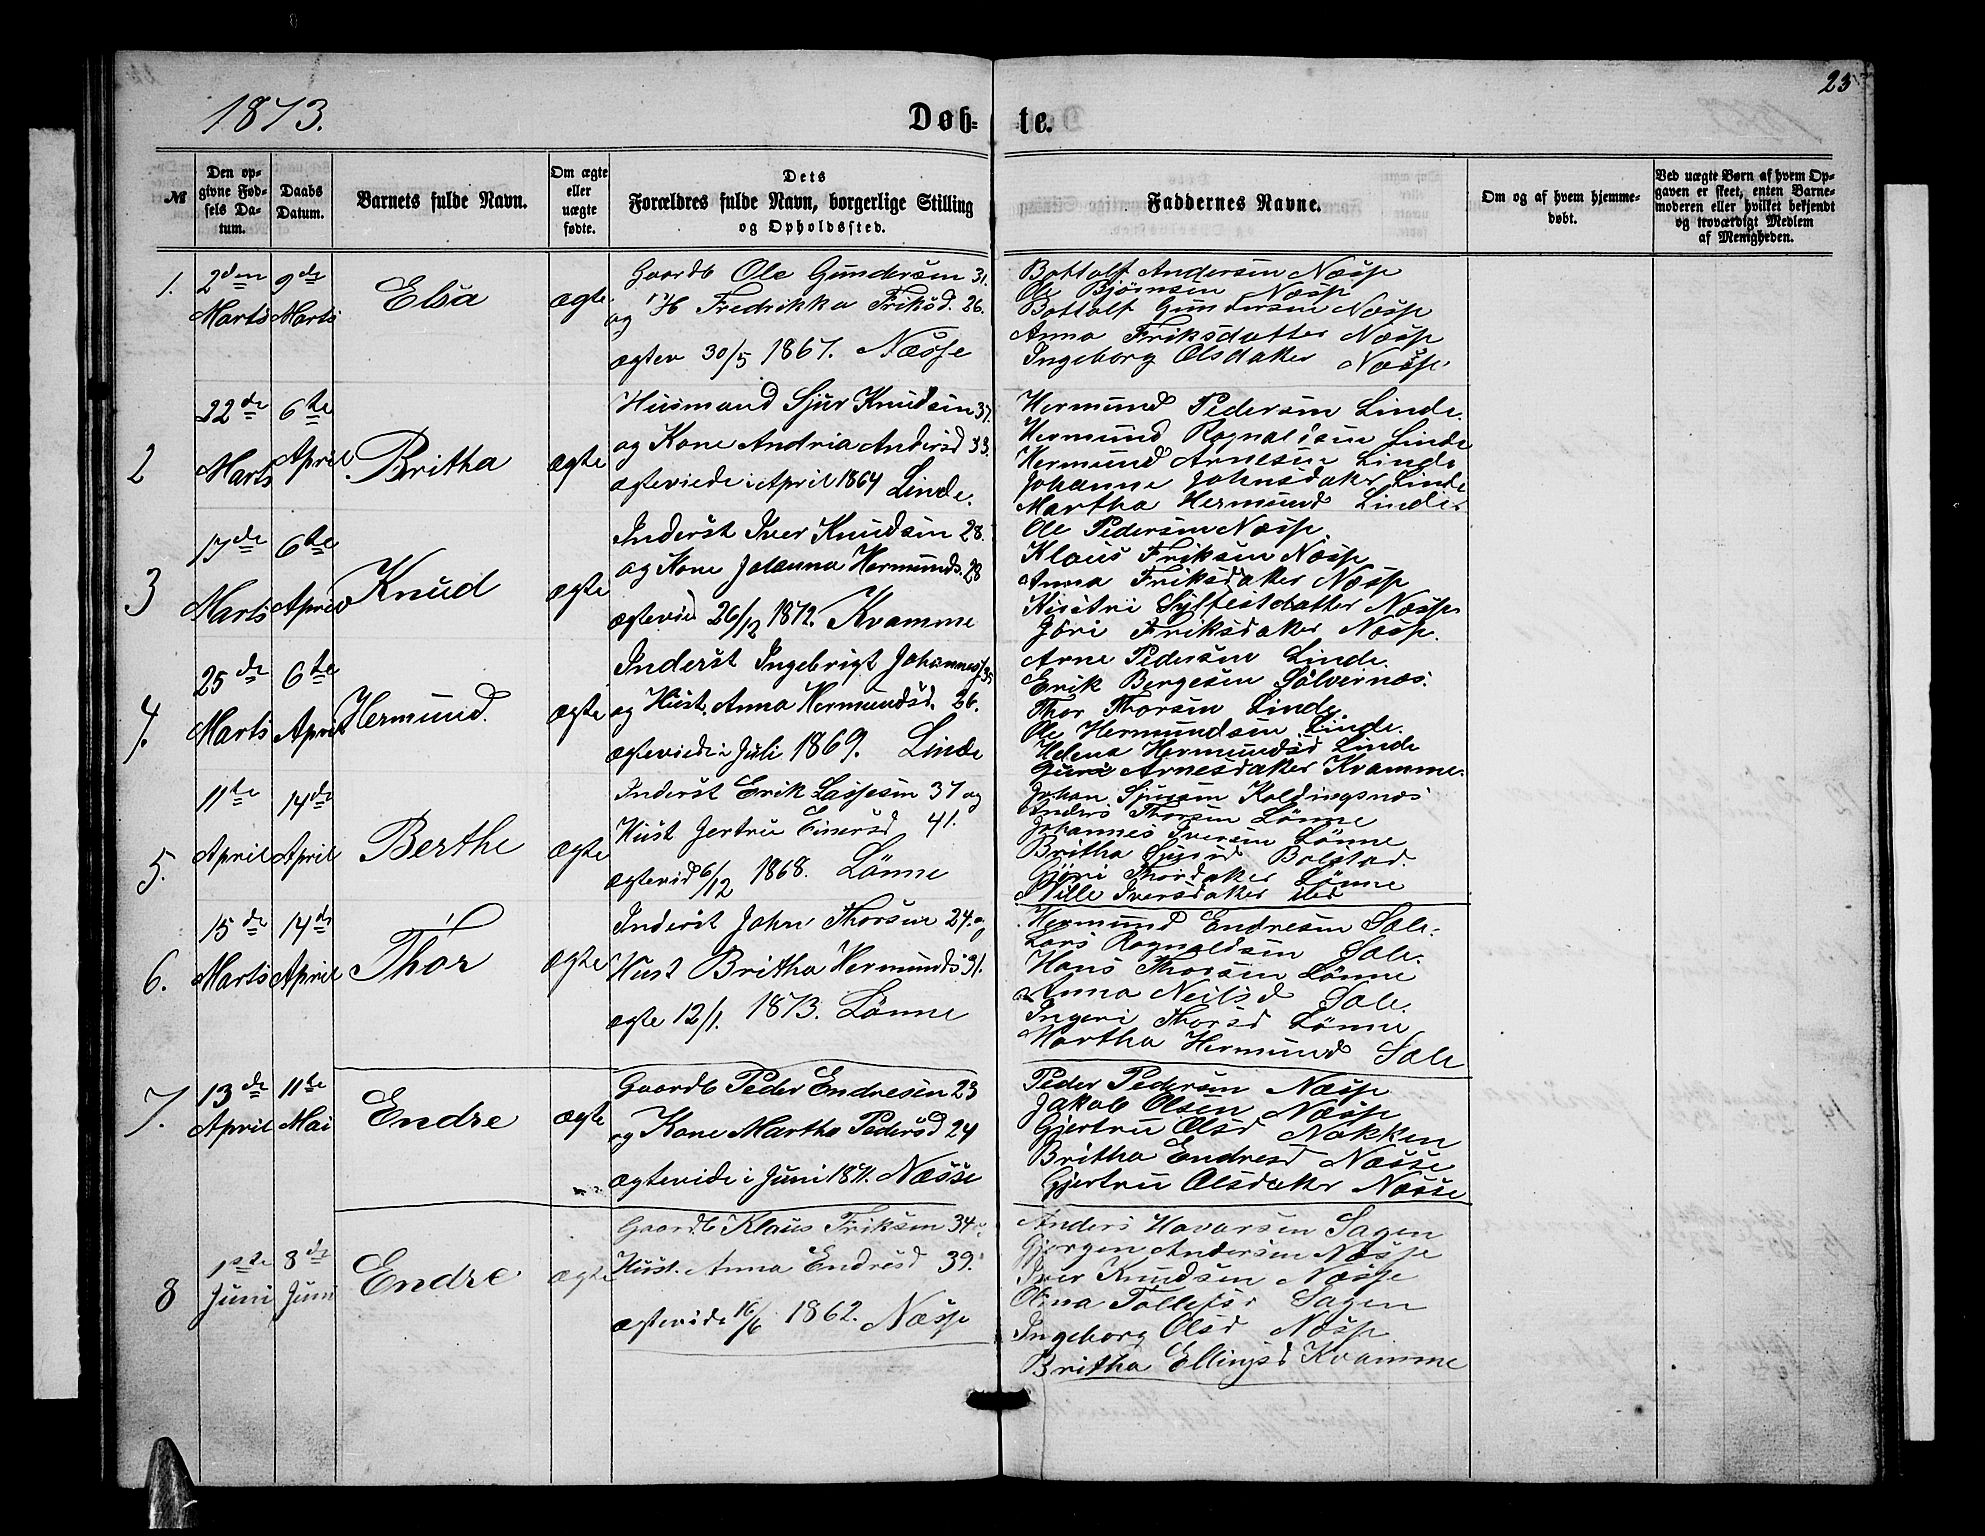 23
1873.
Døb-
te.
№
Den op-
givne Fød-
sels Da-
tum.
Daabs
Datum.
Barnets fulde Navn.
Om ægte
eller
uægte
fødte.
Dets
Forældres fulde Navn, borgerlige Stilling
og Opholdssted.
Faddernes Navne.
Om og af hvem hjemme-
døbt.
Ved uægte Børn af hvem Op-
gaven er skeet, enten Barne-
moderen eller hvilket bekjendt
og troværdigt Medlem
af Menigheden.
1.
2den
Marts
9de
Marts
Elsa
ægte
Gaardb Ole Gundersen 31.
og H Fredrikka Friksd. 26.
ægtev 30/5 1867. Næsse
Bottolf Andersen Næsse
Ole Bjørnsen Næsse
Bottolf Gundersen Næsse
Anna Friksdatter Næsse
Ingeborg Olsdatter Næsse
2
22de
Marts
6te
April
Britha
ægte
Husmand Sjur Knudsen 37.
og Kone Andria Andersd 33.
ægteviede i April 1864 Linde.
Hermund Pedersen Linde.
Hermund Rognaldsen Linde
Hermund Arnesen Linde
Johanne Johnsdatter Linde
Martha Hermund Linde
3
17de
Marts
6te
April
Knud
ægte
Inderst Iver Knudsen 28.
og Kone Johanna Hermunds. 28
ægtevied 26/12 1872. Kvamme
Ole Pedersen Næsse
Klaus Friksen Næsse
Anna Friksdatter Næsse
Sylfestdatter Næsse
Jóri Friksdatter Næsse.
4.
25de
Marts
6te
April
Hermund.
ægte
Inderst Ingebrigt Johannes 35
og Hust. Anna Hermundsd. 26.
ægteviede i Juli 1869. Linde
Arne Pedersen Linde.
Erik Bergesen Sólvernæs.
Thor Thorsen Linde.
Ole Hermundsen Linde.
Helena Hermundsd Linde
Guri Arnesdatter Kvamme.
5.
11te
April
14de
April
Berthe
ægte
Inderst Erik Lassesen 37 og
Hust Jertru Einersd 41.
ægtevid 6/12 1868. Lønne
Johan Sjursen Koldingsnæs
Anders Thorsen Lønne
Johannes Iversen Lønne
Britha Sjursd Bolstad.
Gjøri Thordatter Lønne
Nille Iversdatter ibd
6.
15de
Marts
14de
April
Thór
ægte
Inderst John Thorsen 24. og
Hust Britha Hermunds 31.
ægte 12/1. 1873. Lønne
Hermund Endresen Sale.
Lars Rognaldsen Sale.
Hans Thorsen Lønne
Anna Neilsd Sale.
Ingeri Thorsd Lønne
Martha Hermund Sale
7.
13de
April
11te
Mai
Endre
ægte
Gaardb Peder Endresen 23
og Kone Martha Pedersd 24
ægtevide i Juni 1871. Næsse
Peder Pedersen Næsse
Jakob Olsen Næsse
Gjertru Olsd Nokken
Britha Endresd Næsse
Gjertru Olsdatter Næsse
8
1ste
Juni
8de
Juni
Endre
ægte
Gaardb Klaus Friksen 34
Hust. Anna Endresd 39.
ægtevide 16/6 1862. Næsse
Anders Havarsen Sagen
Gjørgen Andersen Næsse
Iver Knudsen Næsse
Olina Tollefsd Sagen
Ingeborg Olsd Næsse
Britha Ellingsd Kvamme